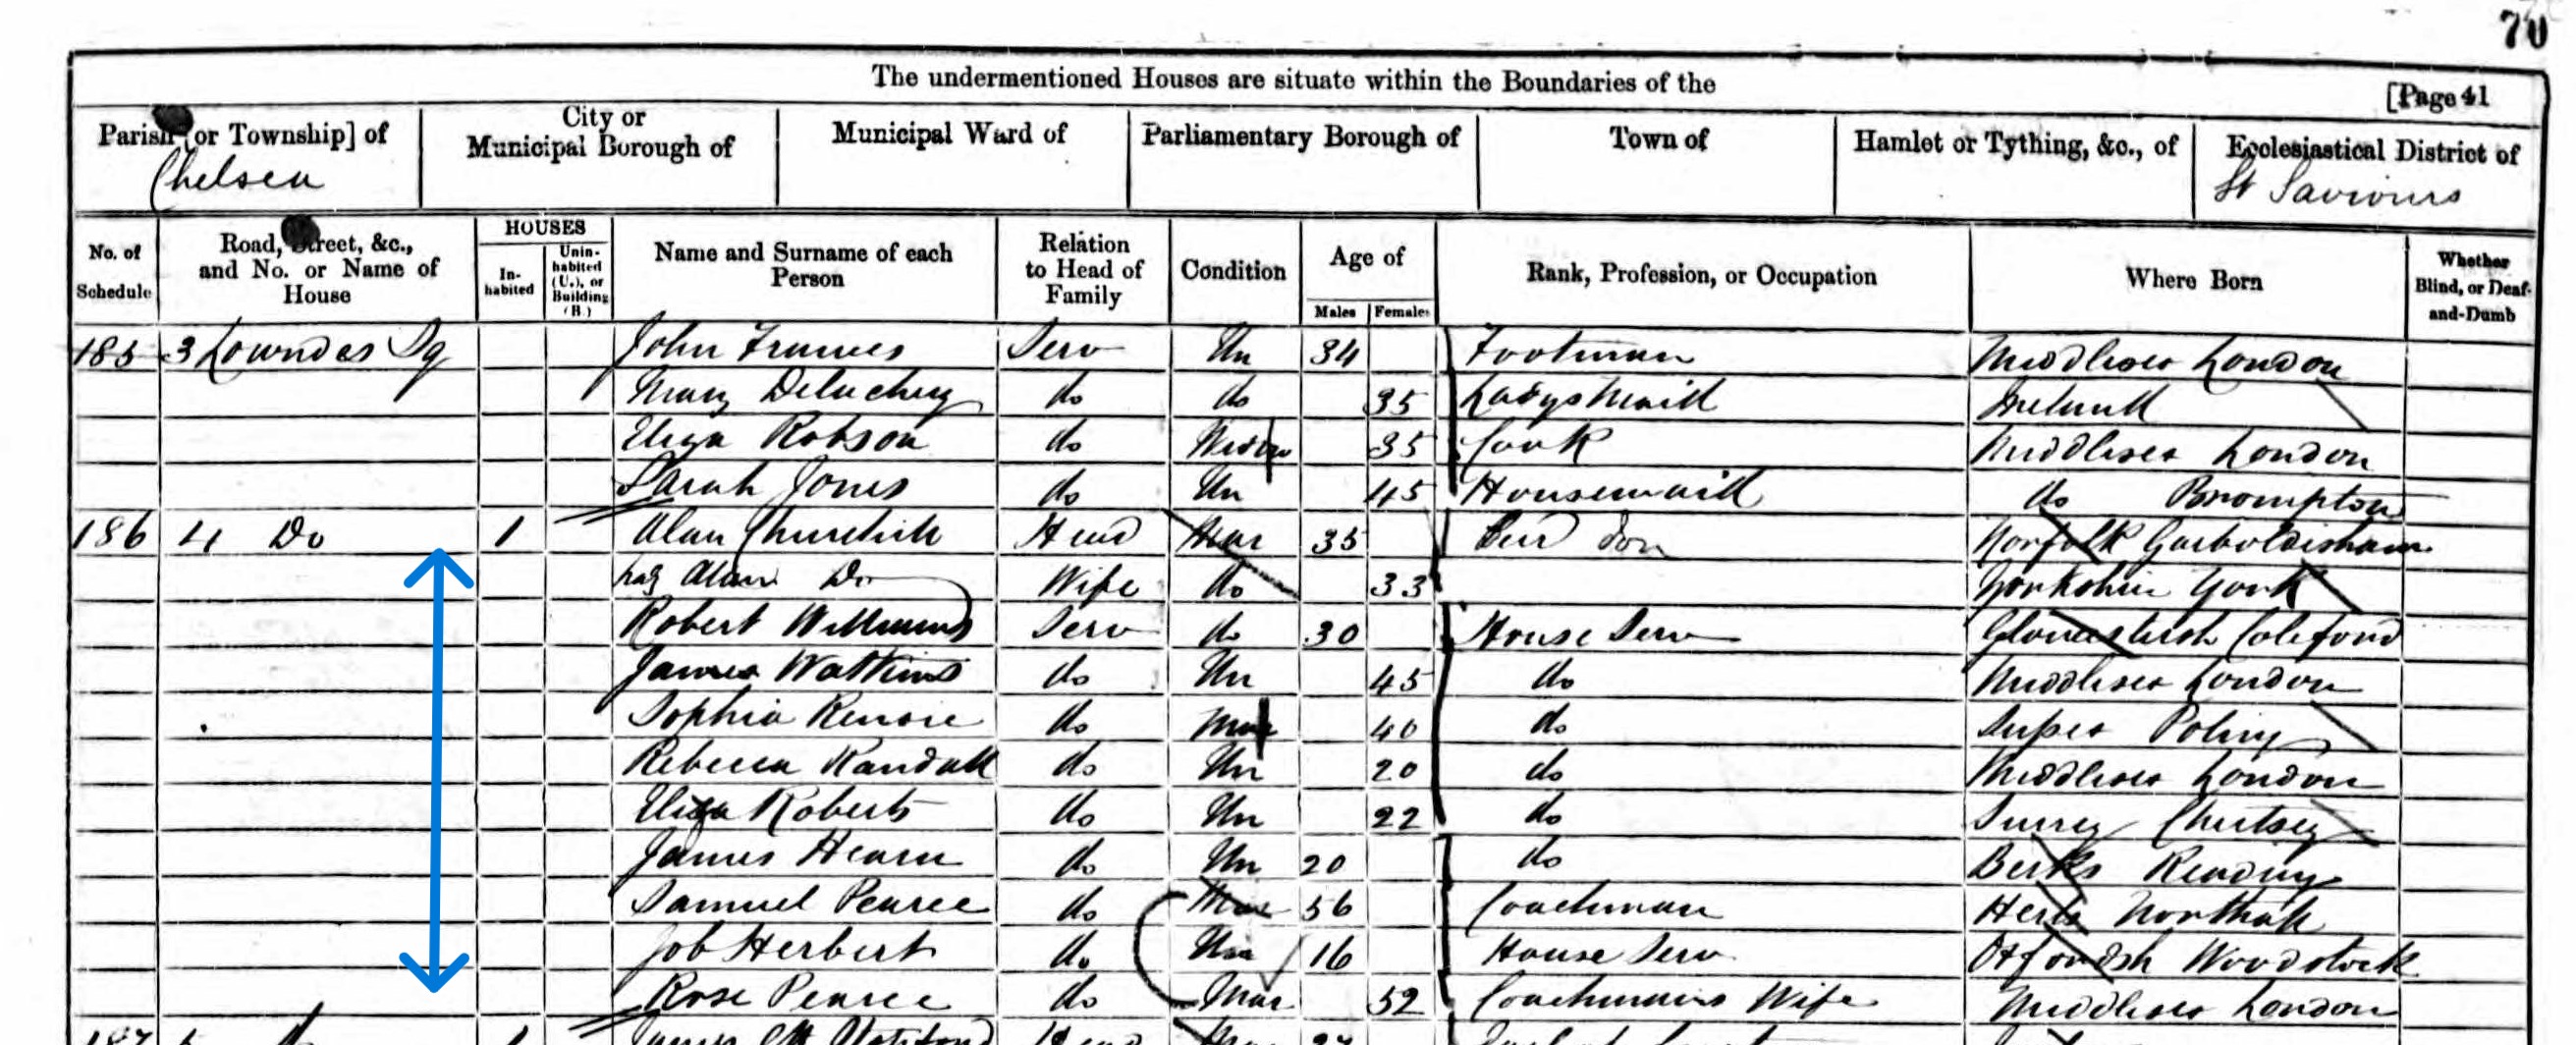 70
The undermentioned Houses are situate within the Boundaries of the
[Page 41
Parish [or Township] of
Chelsea
City or
Municipal Borough of
Municipal Ward of
Parliamentary Borough of
Town of
Hamlet or Tything, &c., of
Ecclesiastical District of
St Saviours
No. of Schedule
Road, Street, &c., and No. or Name of House
HOUSES
In-habited
Unin-habited (U.), or Building (B.)
Name and Surname of each Person
Relation to Head of Family
Condition
Age of
Males Females
Rank, Profession, or Occupation
Where Born
Whether Blind, or Deaf-and-Dumb
185 3 Lowndes Sq John Serv Un 34 Footman Middlesex London
Mary do do 35 Ladys Maid Ireland
Eliza Robson do Widow 35 Cook Middlesex London
Sarah Jones do Un 45 Housemaid do Brompton
186 4 Do 1 Alan Churchill Head Mar 35 Norfolk Garboldisham
Alan Do Wife do 33 Yorkshire York
Robert Williams Serv do 30 House Serv Coleford
James Watkins do Un 45 do Middlesex London
Sophia do Mar 40 do Sussex Poling
Rebecca Randall do Un 20 do Middlesex London
Eliza Roberts do Un 22 do Surrey Chertsey
James Hearn do Un 20 do Berks Reading
Samuel Pearce do Mar 56 Coachman Herts
Job Herbert do Un 16 House Serv Oxfordsh Woodstock
Rose Pearce do Mar 52 Coachmans Wife Middlesex London
187